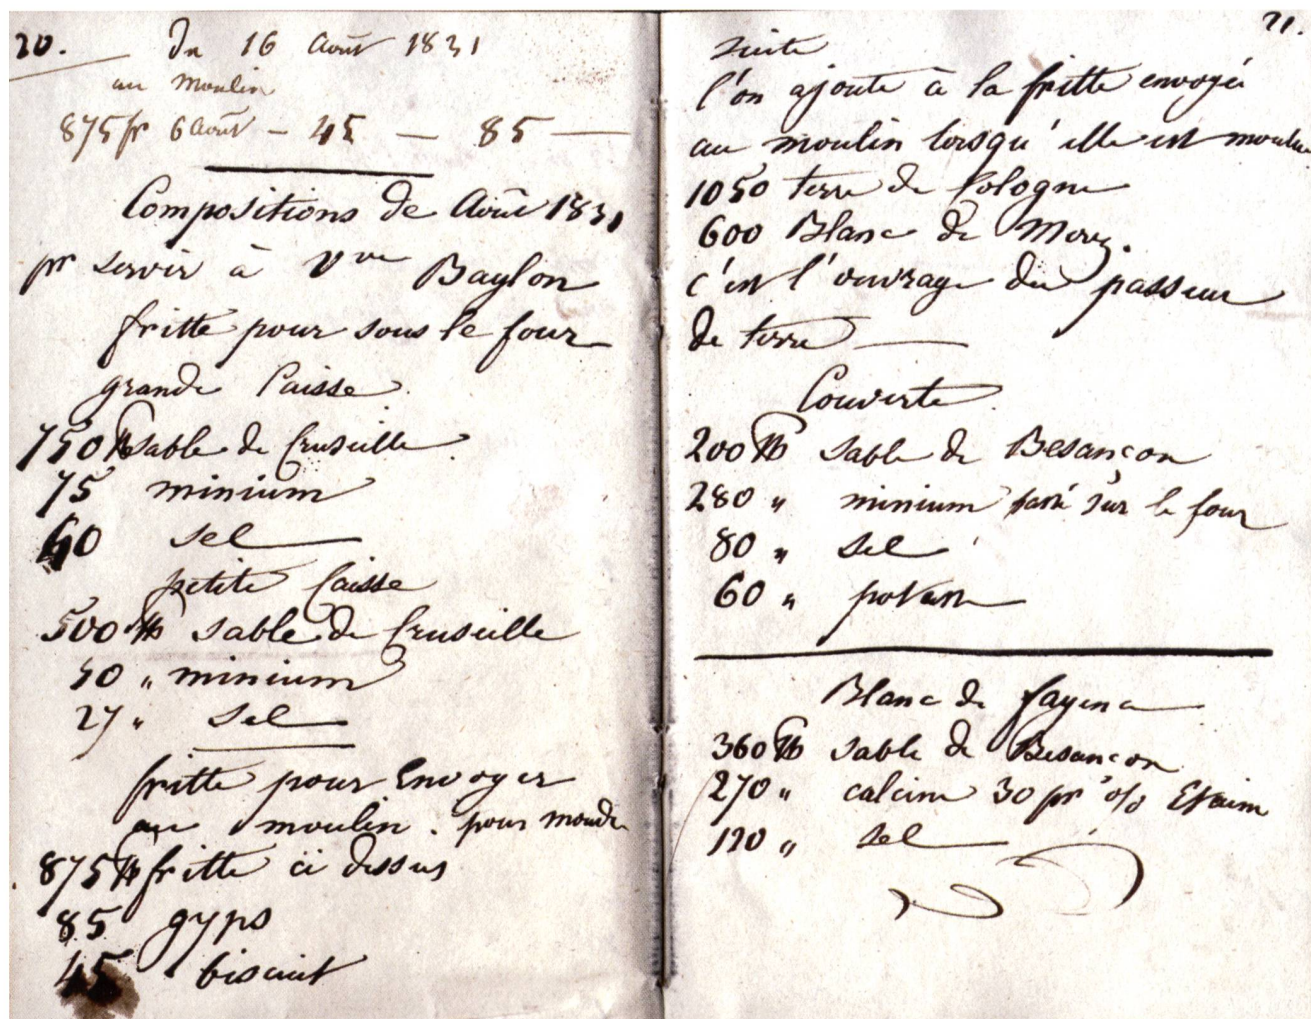 20. Du 16 Août 1831
au Moulin
875 fr 6 Août - 45 — 85 —
Compositions de Août 1831
pr servir à Vve Baylon
fritte pour sous le four
grande Caisse
750 lb sable de Cruseille
75 minium
60 sel
petite Caisse
500 lb sable de Cruseille
50 " minium
27 " sel
fritte pour Envoyer
au moulin. pour moudre
875 lb fritte ci dessus
85 gyps
45 biscuit
21.
suite
l'on ajoute à la fritte envoyée
au moulin lorsqu'elle est moulue
1050 terre de Cologne
600 Blanc de Morez.
c'est l'ouvrage du passeur
de terre —
Couverte
200 lb sable de Besançon
280 " minium passé sur le four
80 " sel
60 " potasse
Blanc de fayence
360 lb sable de Besançon
270 " calcine 30 pr % Etaim
120 " sel